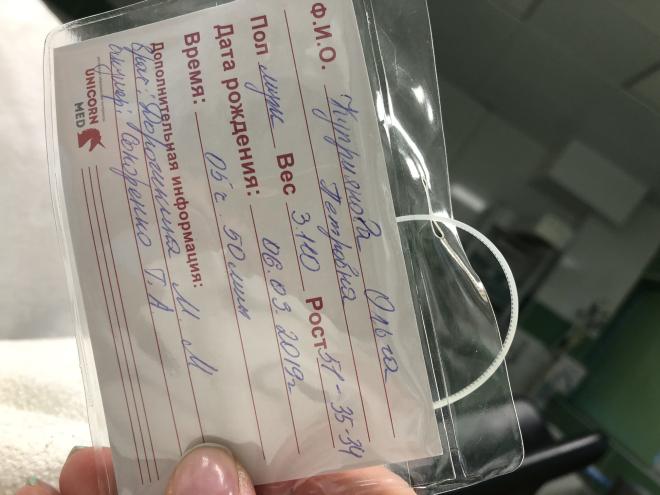 Ф.И.О. Куприенова Ольга
Петровна
Пол муж Вес 3.110 Рост 51-35-34
Дата рождения: 06.03.2019г
Время: 05ч. 50мин
Дополнительная информация:
Врач: Дорошкина М. М
Акушер: Токоренко Т. А
UNICORN
MED